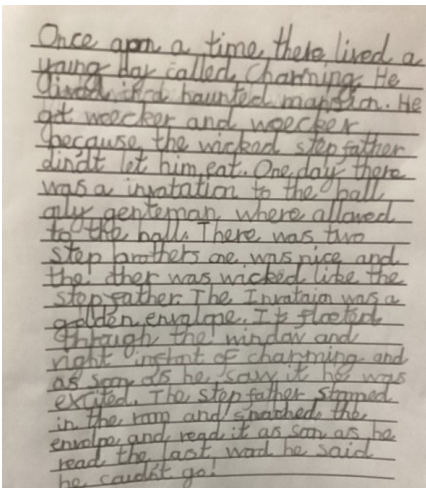 Once apon a time, there lived a
young day called, Charming. He
lived in a haunted mansion. He
got woecker and woecker
because, the wicked step father
dindt let him eat. One day there
was a invatation to the ball
only genteman where allowed
to the ball. There was two
step brothers one was nice and
the other was wicked like the
step father. The Invataion was a
golden envalope. It floated
through the window and
right instont of charming and
as soon as he saw it he was
excited. The step father stomed
in the room and snached the
envolpe and read it as soon as he
read the last word he said
he caudn't go!